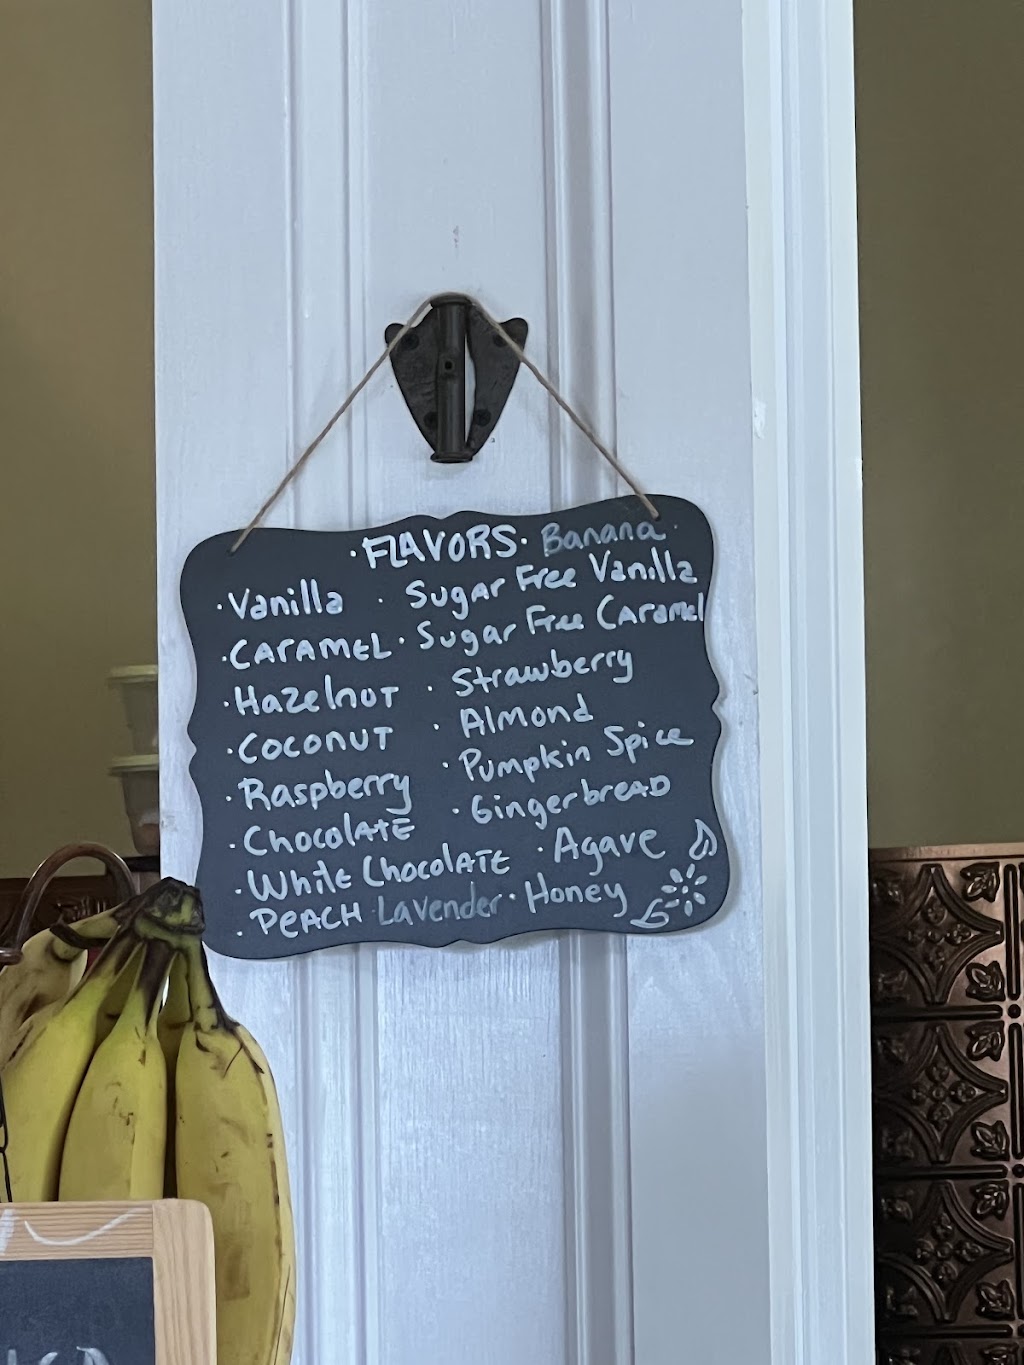 · FLAVORS · Banana ·
· Vanilla · Sugar Free Vanilla
· CARAMEL · Sugar Free Caramel
· Hazelnut · Strawberry
· Coconut · Almond
· Raspberry · Pumpkin Spice
· Chocolate · Gingerbread
· White Chocolate · Agave
· PEACH · Lavender · Honey